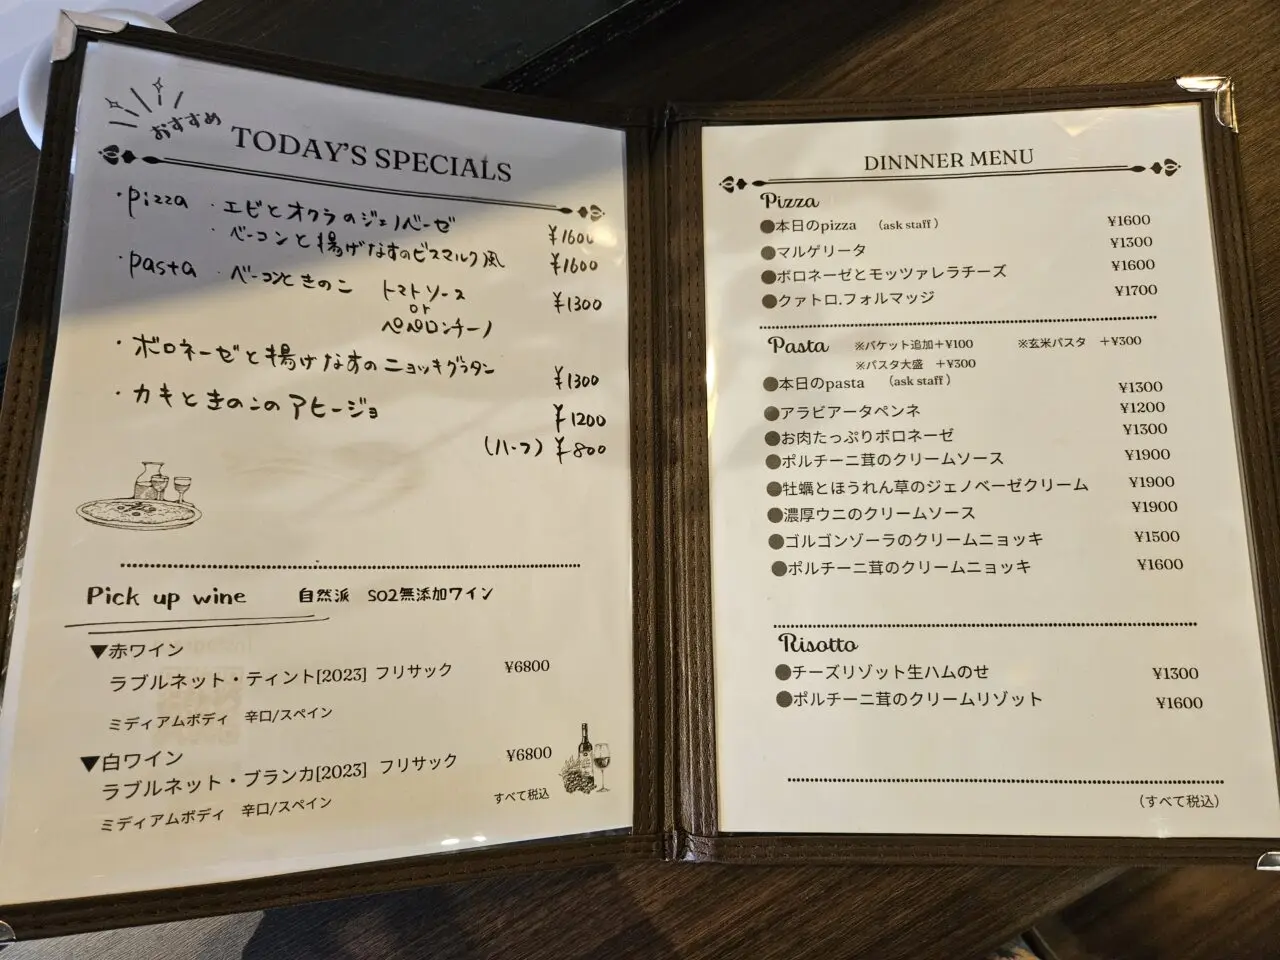 おすすめ
TODAY'S SPECIALS
・pizza ・エビとオクラのジェノベーゼ ¥1600
・ベーコンと揚げなすのビスマルク風 ¥1600
・pasta ・ベーコンときのこ トマトソース ¥1300
or
ペペロンチーノ
・ボロネーゼと揚げなすのニョッキグラタン ¥1300
・カキときのこのアヒージョ ¥1200
(ハーフ) ¥800
Pick up wine 自然派 SO2無添加ワイン
▼赤ワイン
ラブルネット・ティント[2023] フリサック ¥6800
ミディアムボディ 辛口/スペイン
▼白ワイン
ラブルネット・ブランカ[2023] フリサック ¥6800
ミディアムボディ 辛口/スペイン
すべて税込
DINNNER MENU
Pizza
●本日のpizza (ask staff) ¥1600
●マルゲリータ ¥1300
●ボロネーゼとモッツァレラチーズ ¥1600
●クァトロ.フォルマッジ ¥1700
Pasta ※バケット追加+¥100 ※玄米パスタ +¥300
※パスタ大盛 +¥300
●本日のpasta (ask staff) ¥1300
●アラビアータペンネ ¥1200
●お肉たっぷりボロネーゼ ¥1300
●ポルチーニ茸のクリームソース ¥1900
●牡蠣とほうれん草のジェノベーゼクリーム ¥1900
●濃厚ウニのクリームソース ¥1900
●ゴルゴンゾーラのクリームニョッキ ¥1500
●ポルチーニ茸のクリームニョッキ ¥1600
Risotto
●チーズリゾット生ハムのせ ¥1300
●ポルチーニ茸のクリームリゾット ¥1600
(すべて税込)